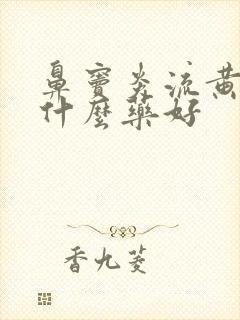 鼻窦炎流黄
什麼藥好
香九菱